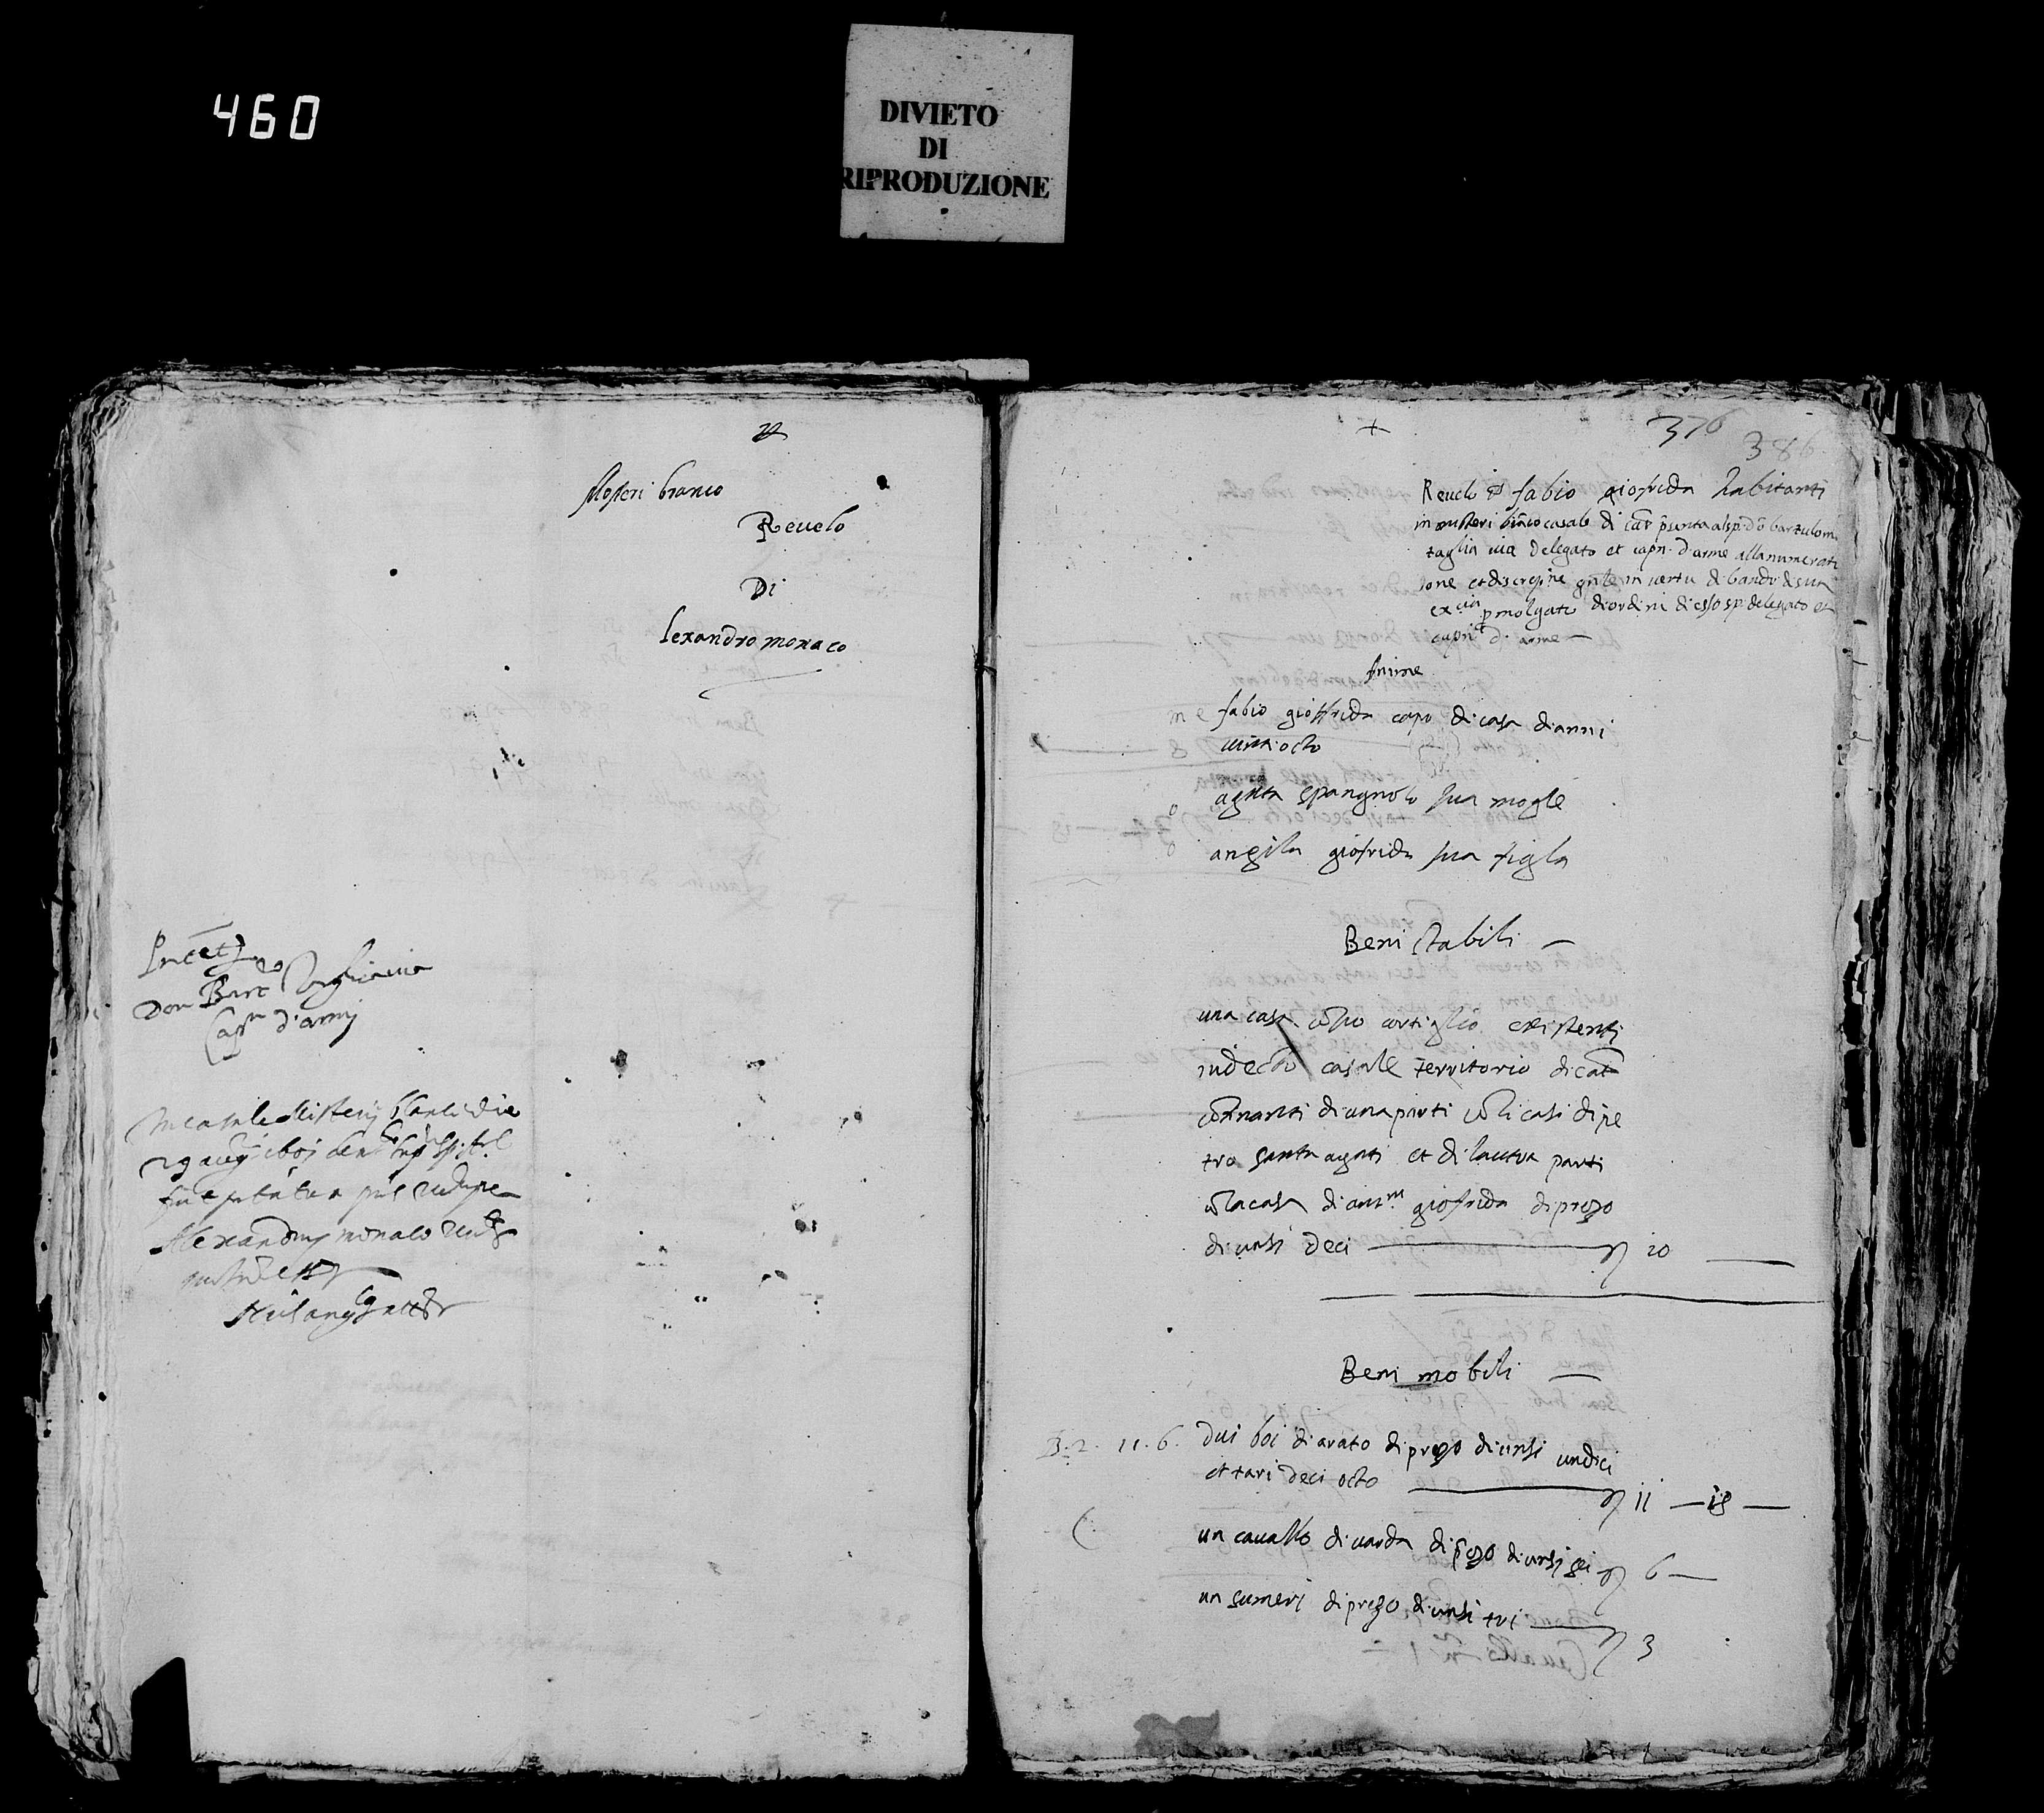 460
DIVIETO
DI
RIPRODUZIONE
Misteri bianco
Revelo
Di
lexandro monaco
Don Bart Tagliavia
Cap.n d'armi
In casale Misterij Blanci die
Alexandrum monaco
+
376
386
Revelo di fabio giofrida habitanti
in misteri bianco casale di cat p̄sentato al sp. don bartulom
taglia via delegato et cap.n d'arme alla numerati
one et discreptione gn̄le in vertu di bando di sua
ex.cia p̄molgato di ordini di esso sp. delegato et
cap.n d'arme
Anime
me fabio gioffrida capo di casa di anni
vinti octo
0 agata spangnolo sua mogle
0 angila giofrida sua figla
Beni stabili
una casa cō suo cortiglio existenti
in decto casale territorio di cat
cōfinanti di una parti cō li casi di pe
tro santa agati et di lautra parti
cō la casa di ant.ni giofrida di prezo
di unsi deci 10
Beni mobili
B. 2. 11. 6. dui boi di arato di prezo di unsi undici
et tari deci octo 11 — 18 —
un cavallo di varda di p̄ezo di unsi sei 6 —
un sumeri di prezo di unsi tri 3